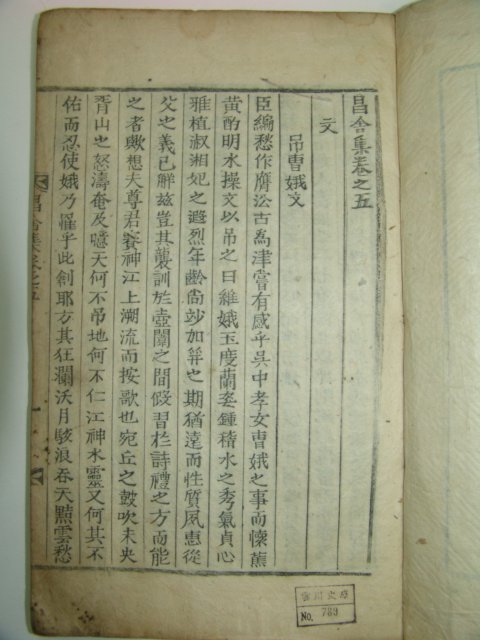 昌舍集卷之五
文
吊曺娥文
臣編愁作膺訟古為津嘗有感乎吳中孝女曺娥之事而懷蕉
黃酌明水操文以吊之曰維娥玉度蘭姿鍾積水之秀氣貞心
雅植叔湘妃之遐烈年齡尙妙加笄之期猶遠而性質夙惠從
父之義已解玆豈其襲訓於壺闈之間假習於詩禮之方而能
之者歟想夫尊君賽神江上溯流而按歌也宛丘之鼓吹未央
胥山之怒濤奄及噫天何不吊地何不仁江神水靈又何其不
佑而忍使娥乃罹乎此創耶方其狂瀾沃月駭浪呑天黯雲愁
昌舍集卷之五
No. 789